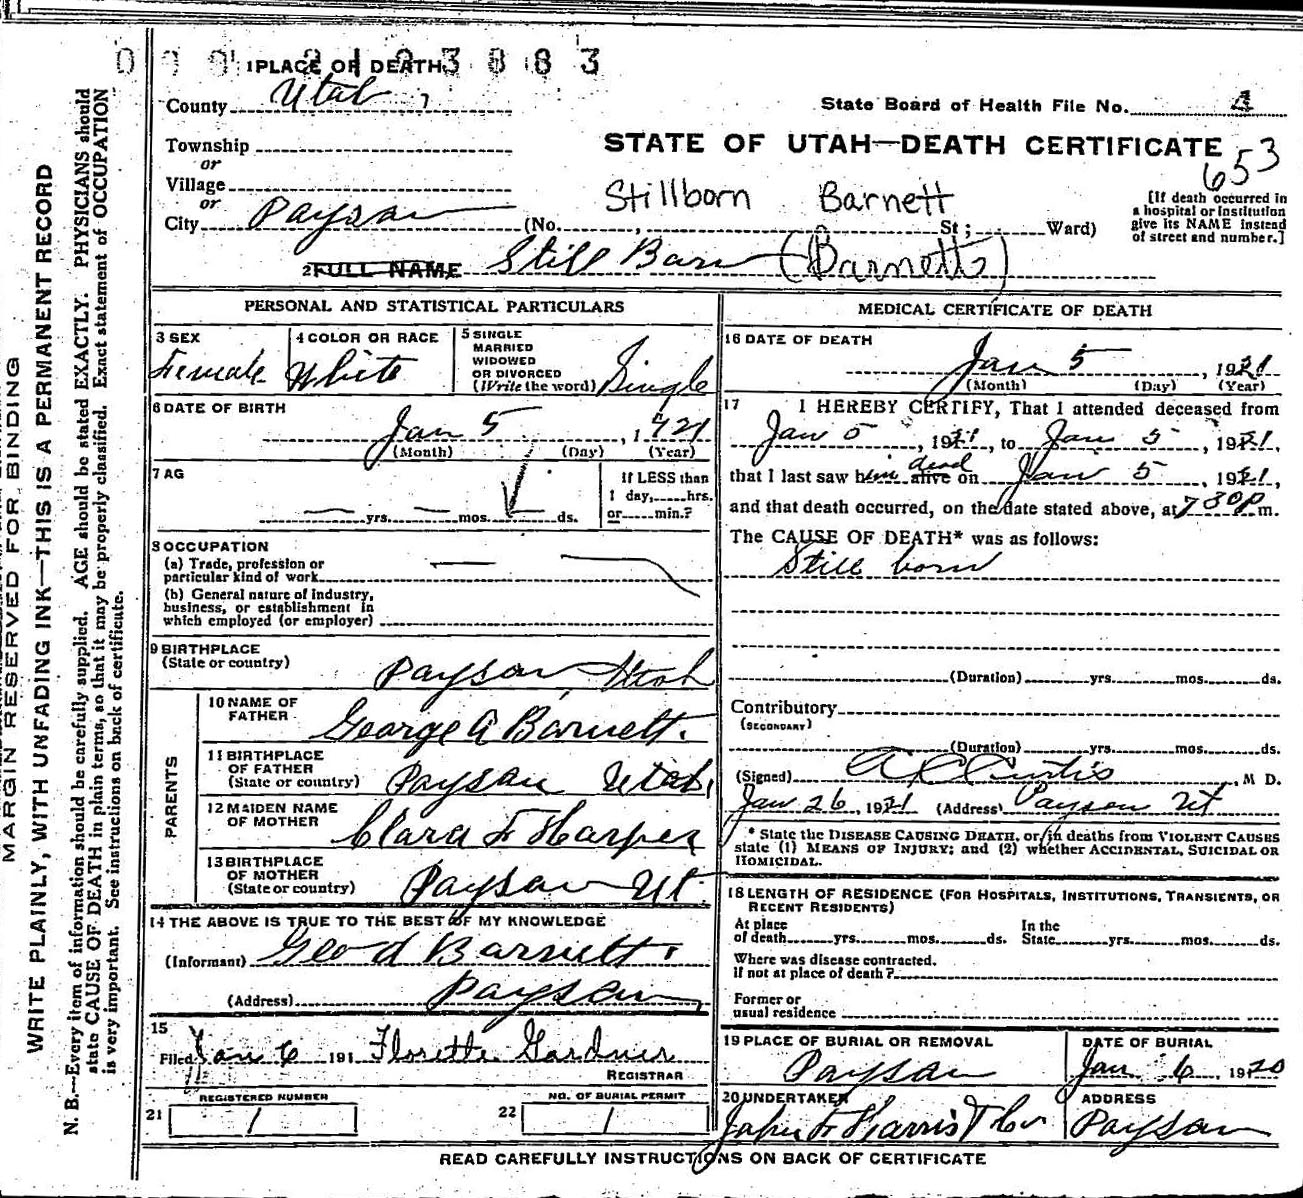 MARGIN RESERVED FOR BINDING
WRITE PLAINLY, WITH UNFADING INK—THIS IS A PERMANENT RECORD
N. B.—Every item of information should be carefully supplied. AGE should be stated EXACTLY. PHYSICIANS should
state CAUSE OF DEATH in plain terms, so that it may be properly classified. Exact statement of OCCUPATION
is very important. See instructions on back of certificate.
1 PLACE OF DEATH
County Utah
State Board of Health File No. 4
Township
or
STATE OF UTAH—DEATH CERTIFICATE
653
Village
or
Stillborn Barnett
City Payson (No. , St; Ward)
[If death occurred in
a hospital or institution
give its NAME instead
of street and number.]
2 FULL NAME Still Born (Barnett)
PERSONAL AND STATISTICAL PARTICULARS
3 SEX
Female
4 COLOR OR RACE
White
5 SINGLE
MARRIED
WIDOWED
OR DIVORCED
(Write the word) Single
6 DATE OF BIRTH
Jan 5, 1921
(Month) (Day) (Year)
7 AG
yrs. mos. ds.
If LESS than
1 day, hrs.
or min.?
8 OCCUPATION
(a) Trade, profession or
particular kind of work
(b) General nature of industry,
business, or establishment in
which employed (or employer)
9 BIRTHPLACE
(State or country)
Payson Utah
PARENTS
10 NAME OF
FATHER
George A Barnett.
11 BIRTHPLACE
OF FATHER
(State or country) Payson Utah
12 MAIDEN NAME
OF MOTHER
Clara F Harper
13 BIRTHPLACE
OF MOTHER
(State or country) Payson Ut.
14 THE ABOVE IS TRUE TO THE BEST OF MY KNOWLEDGE
(Informant) Geo Barnett.
(Address) Payson
15
Filed Jan 6 191 Florette Gardner
REGISTRAR
21 REGISTERED NUMBER
1
22 NO. OF BURIAL PERMIT
1
MEDICAL CERTIFICATE OF DEATH
16 DATE OF DEATH
Jan 5, 1921
(Month) (Day) (Year)
17 I HEREBY CERTIFY, That I attended deceased from
Jan 5, 1921, to Jan 5, 1921,
that I last saw him dead alive on Jan 5 1921,
and that death occurred, on the date stated above, at 7 30 P m.
The CAUSE OF DEATH* was as follows:
Still born
(Duration) yrs. mos. ds.
Contributory
(SECONDARY)
(Duration) yrs. mos. ds.
(Signed) A C Curtis, M D.
Jan 26, 1921 (Address) Payson Ut
* State the DISEASE CAUSING DEATH, or, in deaths from VIOLENT CAUSES
state (1) MEANS OF INJURY; and (2) whether ACCIDENTAL, SUICIDAL OR
HOMICIDAL.
18 LENGTH OF RESIDENCE (FOR HOSPITALS, INSTITUTIONS, TRANSIENTS, OR
RECENT RESIDENTS)
At place
of death yrs. mos. ds.
In the
State yrs. mos. ds.
Where was disease contracted.
if not at place of death?
Former or
usual residence
19 PLACE OF BURIAL OR REMOVAL
Payson
DATE OF BURIAL
Jan. 6, 1920
20 UNDERTAKER
John F Harris
ADDRESS
Payson
READ CAREFULLY INSTRUCTIONS ON BACK OF CERTIFICATE